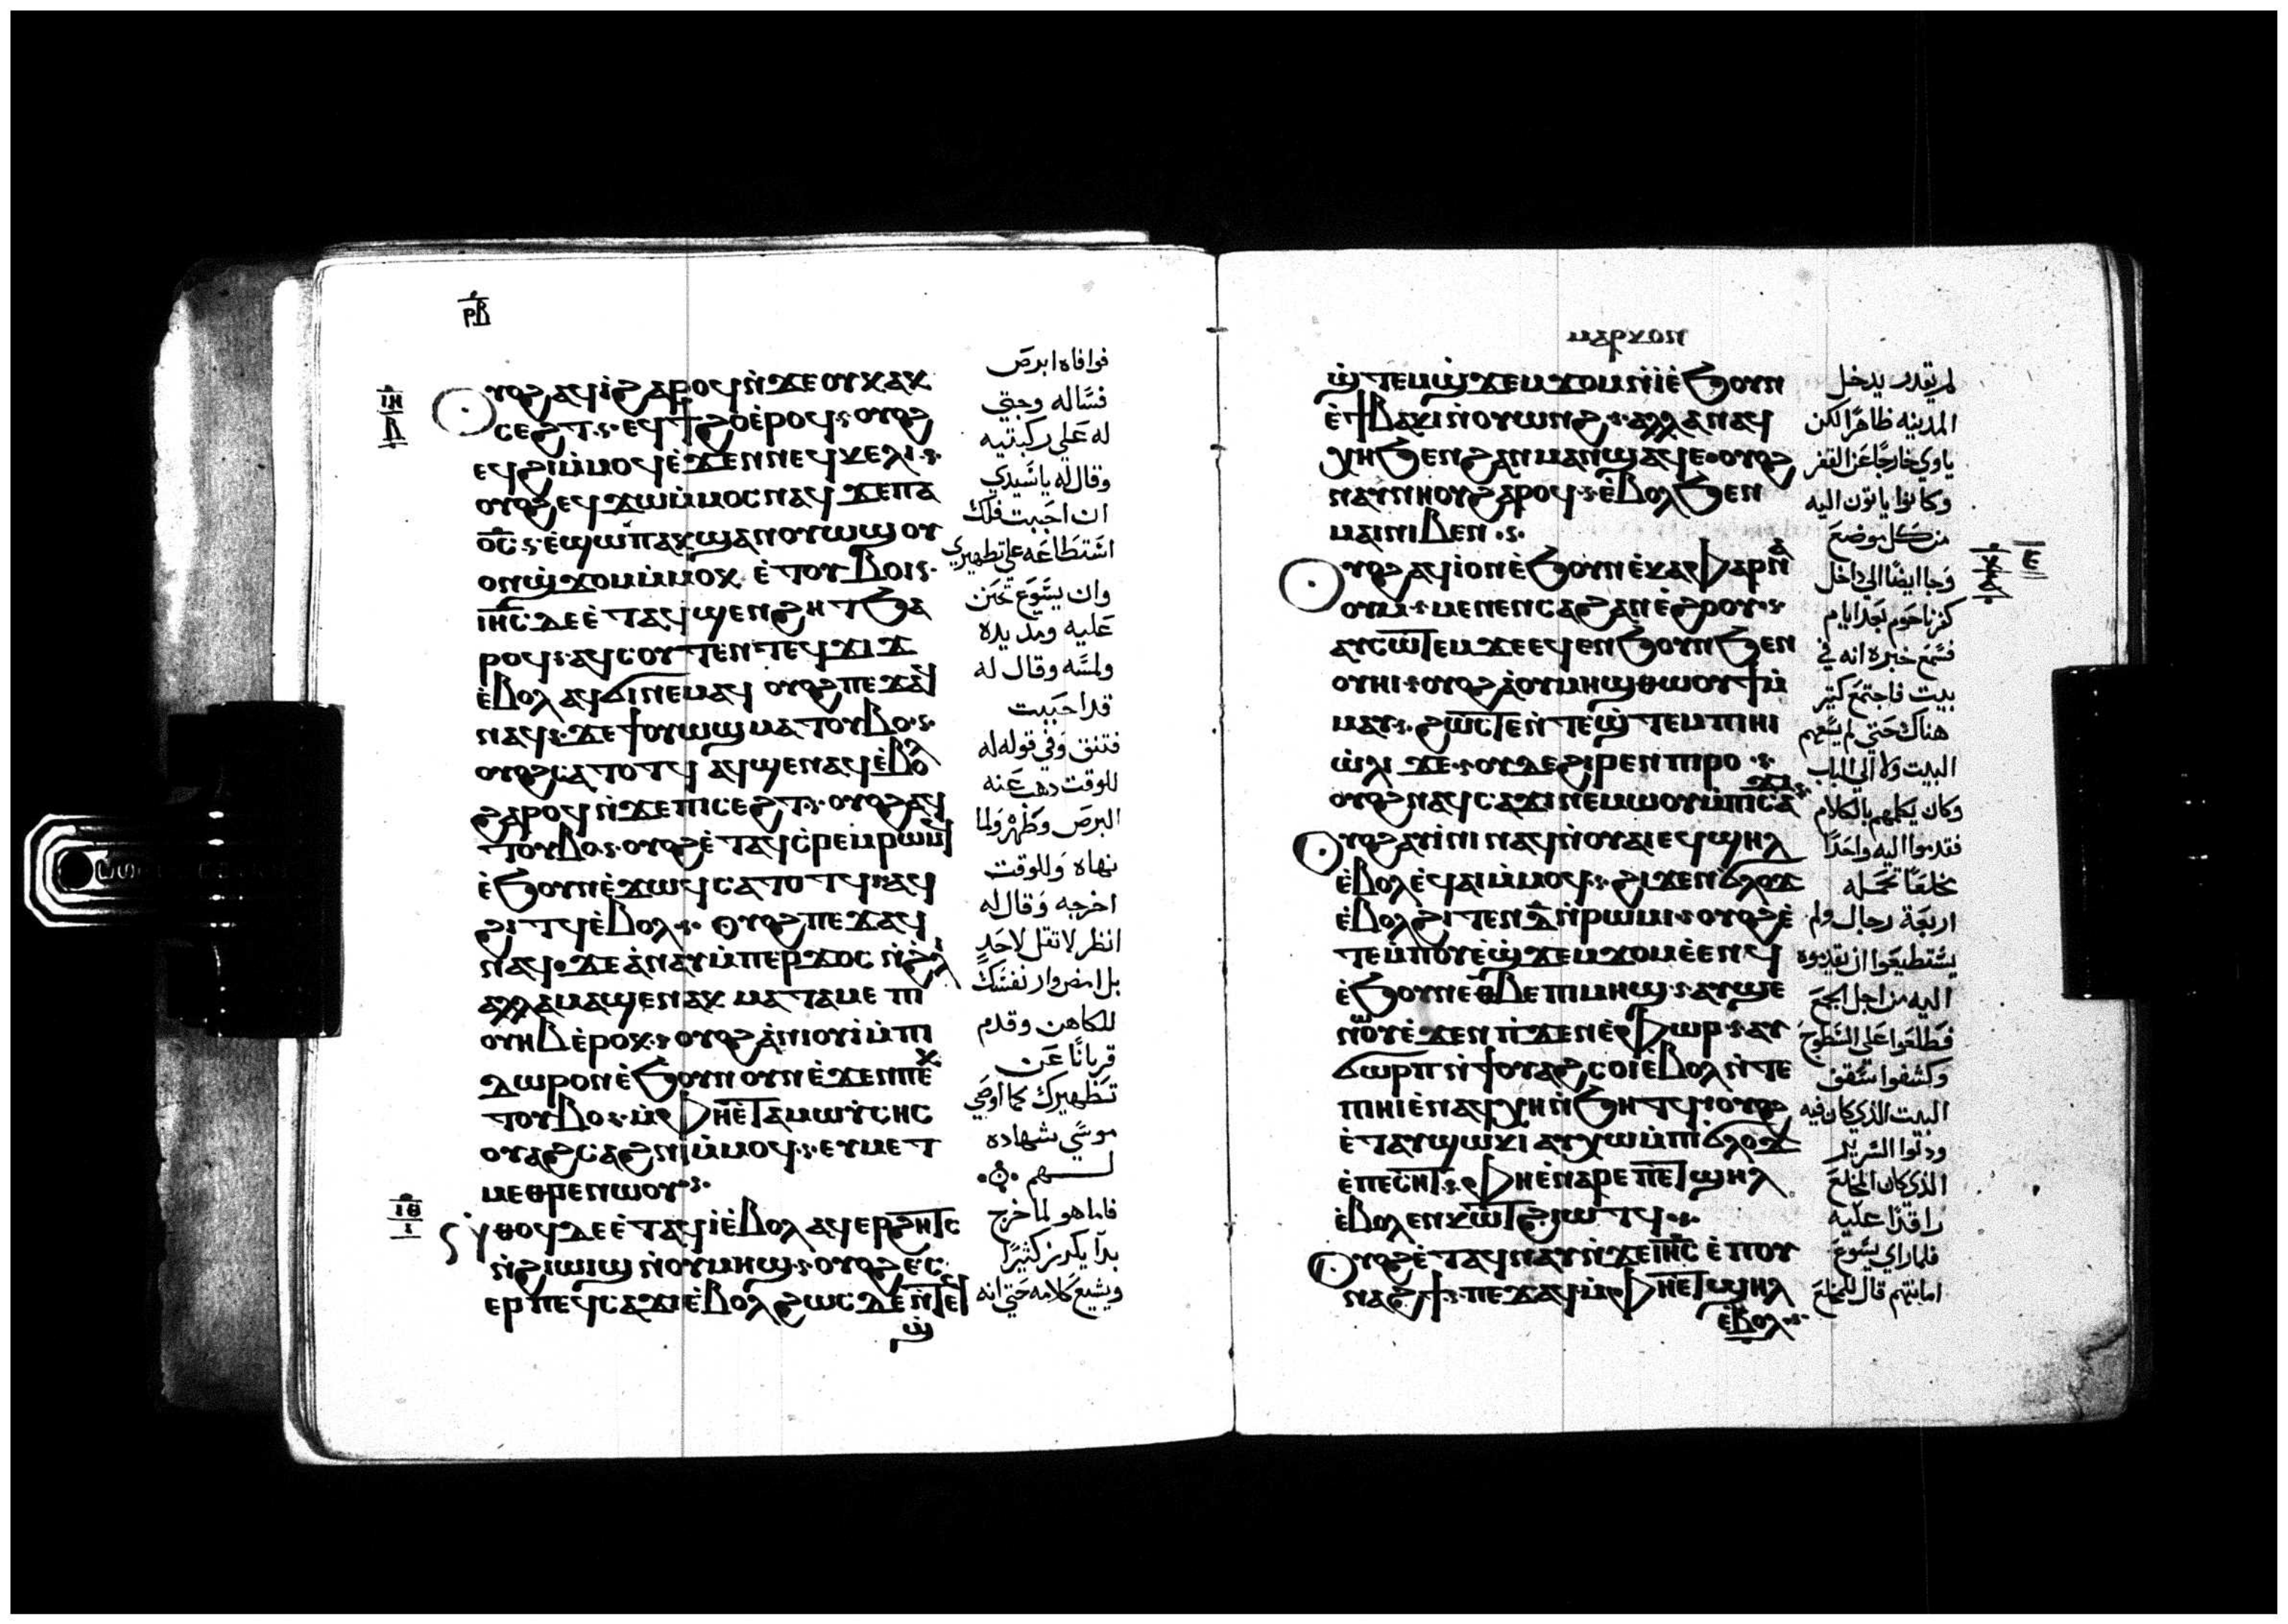 ⲣⲃ
ⲓⲏ
ⲃ
ⲟⲩⲟϩ ⲁϥⲓ̀ ϩⲁⲣⲟϥ ⲛ̀ϫⲉ ⲟⲩⲕⲁⲕ
ⲥⲉϩⲧ ⲉϥϯϩⲟ ⲉ̀ⲣⲟϥ ⲟⲩⲟϩ
ⲉϥϩⲓ ⲙ̀ⲙⲟϥ ⲉ̀ϫⲉⲛ ⲛⲉϥⲕⲉⲗⲓ
ⲟⲩⲟϩ ⲉϥϫⲱ ⲙ̀ⲙⲟⲥ ⲛⲁϥ ϫⲉ ⲡⲁ
ⲟ̅ⲥ̅ ⲉ̀ϣⲱⲡ ⲁⲕϣⲁⲛⲟⲩⲱϣ ⲟⲩ
ⲟⲛϣ̀ϫⲟⲙ ⲙ̀ⲙⲟⲕ ⲉ̀ⲧⲟⲩⲃⲟⲓ
ⲓⲏ̅ⲥ̅ ⲇⲉ ⲉ̀ⲧⲁϥϣⲉⲛϩⲏⲧ ϧⲁ
ⲣⲟϥ ⲁϥⲥⲟⲩⲧⲉⲛ ⲧⲉϥϫⲓϫ
ⲉ̀ⲃⲟⲗ ⲁϥϭⲓ ⲛⲉⲙⲁϥ ⲟⲩⲟϩ ⲡⲉϫⲁϥ
ⲛⲁϥ ϫⲉ ϯⲟⲩⲱϣ ⲙⲁⲧⲟⲩⲃⲟ
ⲟⲩⲟϩ ⲥⲁⲧⲟⲧϥ ⲁϥϣⲉⲛⲁϥ ⲉ̀ⲃⲟⲗ
ϩⲁⲣⲟϥ ⲛ̀ϫⲉ ⲡⲓⲥⲉϩⲧ ⲟⲩⲟϩ ⲁϥ
ⲧⲟⲩⲃⲟ ⲟⲩⲟϩ ⲉ̀ⲧⲁϥⲉⲣⲉⲙⲣⲱⲙϥ
ⲉ̀ϧⲟⲩⲛ ⲉ̀ϫⲱϥ ⲥⲁⲧⲟⲧϥ ⲁϥ
ϩⲓⲧϥ ⲉ̀ⲃⲟⲗ ⲟⲩⲟϩ ⲡⲉϫⲁϥ
ⲛⲁϥ ϫⲉ ⲁ̀ⲛⲁⲩ ⲙ̀ⲡⲉⲣϫⲟⲥ ⲛ̀ϩ̀ⲗⲓ
ⲁⲗⲗⲁ ⲙⲁϣⲉⲛⲁⲕ ⲙⲁⲧⲁⲙⲉ ⲡⲓ
ⲟⲩⲏⲃ ⲉ̀ⲣⲟⲕ ⲟⲩⲟϩ ⲁ̀ⲛⲓⲟⲩⲓ̀ ⲙ̀ⲡⲓ
ⲇⲱⲣⲟⲛ ⲉ̀ϧⲟⲩⲛ ⲟⲩⲛ ⲉ̀ϫⲉⲛ ⲡⲉⲕ
ⲧⲟⲩⲃⲟ ⲙ̀ⲫⲣⲏϯ ⲉ̀ⲧⲁ ⲙⲱⲩⲥⲏⲥ
ⲟⲩⲁϩⲥⲁϩⲛⲓ ⲙ̀ⲙⲟϥ ⲉⲩⲙⲉⲧ
ⲙⲉⲑⲣⲉ ⲛⲱⲟⲩ
ⲓⲑ
ⲓ
ⲛ̀ⲑⲟϥ ⲇⲉ ⲉ̀ⲧⲁϥⲓ̀ ⲉ̀ⲃⲟⲗ ⲁϥⲉⲣϩⲏⲧⲥ
ⲛ̀ϩⲓⲱⲓϣ ⲛ̀ⲟⲩⲙⲏϣ ⲟⲩⲟϩ ⲉⲥ
ⲉⲣ ⲡⲉϥⲥⲁϫⲓ ⲉ̀ⲃⲟⲗ ϩⲱⲥⲇⲉ ⲛ̀ⲧⲉϥ
ϣ̀
فوافاه ابرص
فسَّاله وجثي
له عَلي ركبتيه
وقال له ياسَيدي
ان احَببت فلك
اسَتطاعَه علي تطهيري
وان يسَوع تحَنن
عَليه ومد يده
ولمسَه وقال له
قد احَببت
فتنق وفي قوله له
للوقت ذهب عَنه
البرص وطَهرْ ولما
نهاه وللوقت
اخرجه وقال له
انظر لا تقل لاحَدٍ
بل امض وار نفسَك
للكاهن وقدم
قربانًا عَن
تطهيرك كما اوصَي
موسَي شهاده
لــهم
فاما هو لما خرج
بدآ يكرز كثيرًا
ويشيع كلامه حَتي انه
ⲙⲁⲣⲕⲟⲛ
ϣ̀ⲧⲉⲙϣ̀ϫⲉⲙϫⲟⲙ ⲛ̀ⲓ̀ ⲉ̀ϧⲟⲩⲛ
ⲉ̀ϯⲃⲁⲕⲓ ⲛ̀ⲟⲩⲱⲛϩ ⲁⲗⲗⲁ ⲛⲁϥ
ⲭⲏ ϧⲉⲛ ϩⲁⲛⲙⲁⲛϣⲁϥⲉ ⲟⲩⲟϩ
ⲛⲁⲩⲛⲏⲟⲩ ϩⲁⲣⲟϥ ⲉ̀ⲃⲟⲗ ϧⲉⲛ
ⲙⲁⲓ ⲛⲓⲃⲉⲛ
ⲟⲩⲟϩ ⲁϥⲓ ⲟⲛ ⲉ̀ϧⲟⲩⲛ ⲉ̀ⲕⲁⲫⲁⲣⲛⲁ
ⲟⲩⲙ ⲙⲉⲛⲉⲛⲥⲁ ϩⲁⲛⲉ̀ϩⲟⲟⲩ
ⲁⲩⲥⲱⲧⲉⲙ ϫⲉ ⲉϥⲉⲛϧⲟⲩⲛ ϧⲉⲛ
ⲟⲩⲏⲓ ⲟⲩⲟϩ ⲁ̀ⲟⲩⲙⲏϣ ⲑⲱⲟⲩϯ ⲙ̀
ⲙⲁⲩ ϩⲱⲥⲧⲉ ⲛ̀ⲧⲉϣ̀ⲧⲉⲙ ⲡⲓⲏⲓ
ⲱ̀ⲗⲓ ϫⲉ ⲟⲩⲇⲉ ϩⲓⲣⲉⲛ ⲡⲓⲣⲟ
ⲟⲩⲟϩ ⲛⲁϥⲥⲁϫⲓ ⲛⲉⲙⲱⲟⲩ ⲙ̀ⲡⲓⲥⲁϫⲓ
ⲟⲩⲟϩ ⲁⲩⲓⲛⲓ ⲛⲁϥ ⲛ̀ⲟⲩⲁⲓ ⲉϥϣⲏⲗ
ⲉ̀ⲃⲟⲗ ⲉϥⲁⲓ ⲙ̀ⲙⲟϥ ϩⲓϫⲉⲛ ϭⲗⲟϫ
ⲉ̀ⲃⲟⲗ ϩⲓⲧⲉⲛ ⲇ̅ ⲛ̀ⲣⲱⲙⲓ ⲟⲩⲟϩ ⲉ̀
ⲧⲉⲙ̀ⲡⲟⲩⲉ̀ϣ̀ϫⲉⲙϫⲟⲙ ⲉ̀ⲉⲛϥ
ⲉ̀ϧⲟⲩⲛ ⲉⲑⲃⲉ ⲡⲓⲙⲏϣ ⲁⲩϣⲉ
ⲛⲱⲟⲩ ⲉ̀ϫⲉⲛ ϯϫⲉⲛⲉⲫⲱⲣ ⲁⲩ
ϭⲱⲣⲡ ⲛ̀ϯⲟⲩⲁϩⲥⲟⲓ ⲉ̀ⲃⲟⲗ ⲛ̀ⲧⲉ
ⲡⲓⲏⲓ ⲉ̀ⲛⲁϥⲭⲏ ⲛ̀ϧⲏⲧϥ ⲟⲩⲟϩ
ⲉ̀ⲧⲁⲩϣⲱⲕⲓ ⲁⲩⲭⲱ ⲙ̀ⲡⲓϭⲗⲟϫ
ⲉ̀ⲡⲉⲥⲏⲧ ⲫⲏ ⲉ̀ⲛⲁⲣⲉ ⲡⲉⲧϣⲏⲗ
ⲉ̀ⲃⲟⲗ ⲉⲛⲕⲱⲧ ϩⲓⲱⲧϥ
ⲟⲩⲟϩ ⲉ̀ⲧⲁϥⲛⲁⲩ ⲛ̀ϫⲉ ⲓⲏ̅ⲥ̅ ⲉ̀ⲡⲟⲩ
ⲛⲁϩϯ ⲡⲉϫⲁϥ ⲙ̀ⲫⲏ ⲉⲧϣⲏⲗ
ⲉ̀ⲃⲟⲗ
لم يقدر يدخل
المدينه ظاهرًا لكن
ياوي خارجًا عَن القفر
وكانوا ياتون اليه
من كل موضع
وَجا ايضًا الي داخل
كفرناحَوم بَعَد ايام
فسَمع خبره انه في
بيت فاجتمع كثير
هناك حَتي لم يسَعهم
البيت ولا الي الباب
وكان يكلمهم بالكلام
فقدموا اليه واحَدًا
مخلعًا تحَمله
اربعَة رجال ولم
يسَتطيعَوا ان يقدموه
اليه من اجل الجمع
فطلعَوا عَلي السَطوح
وكشفوا سَقف
البيت الذي كان فيه
ودلوا السَرير
الذي كان المخلع
راقدًا عليه
فلما راي يسَوع
امانتهم قال للمخلع
ⲉ̅